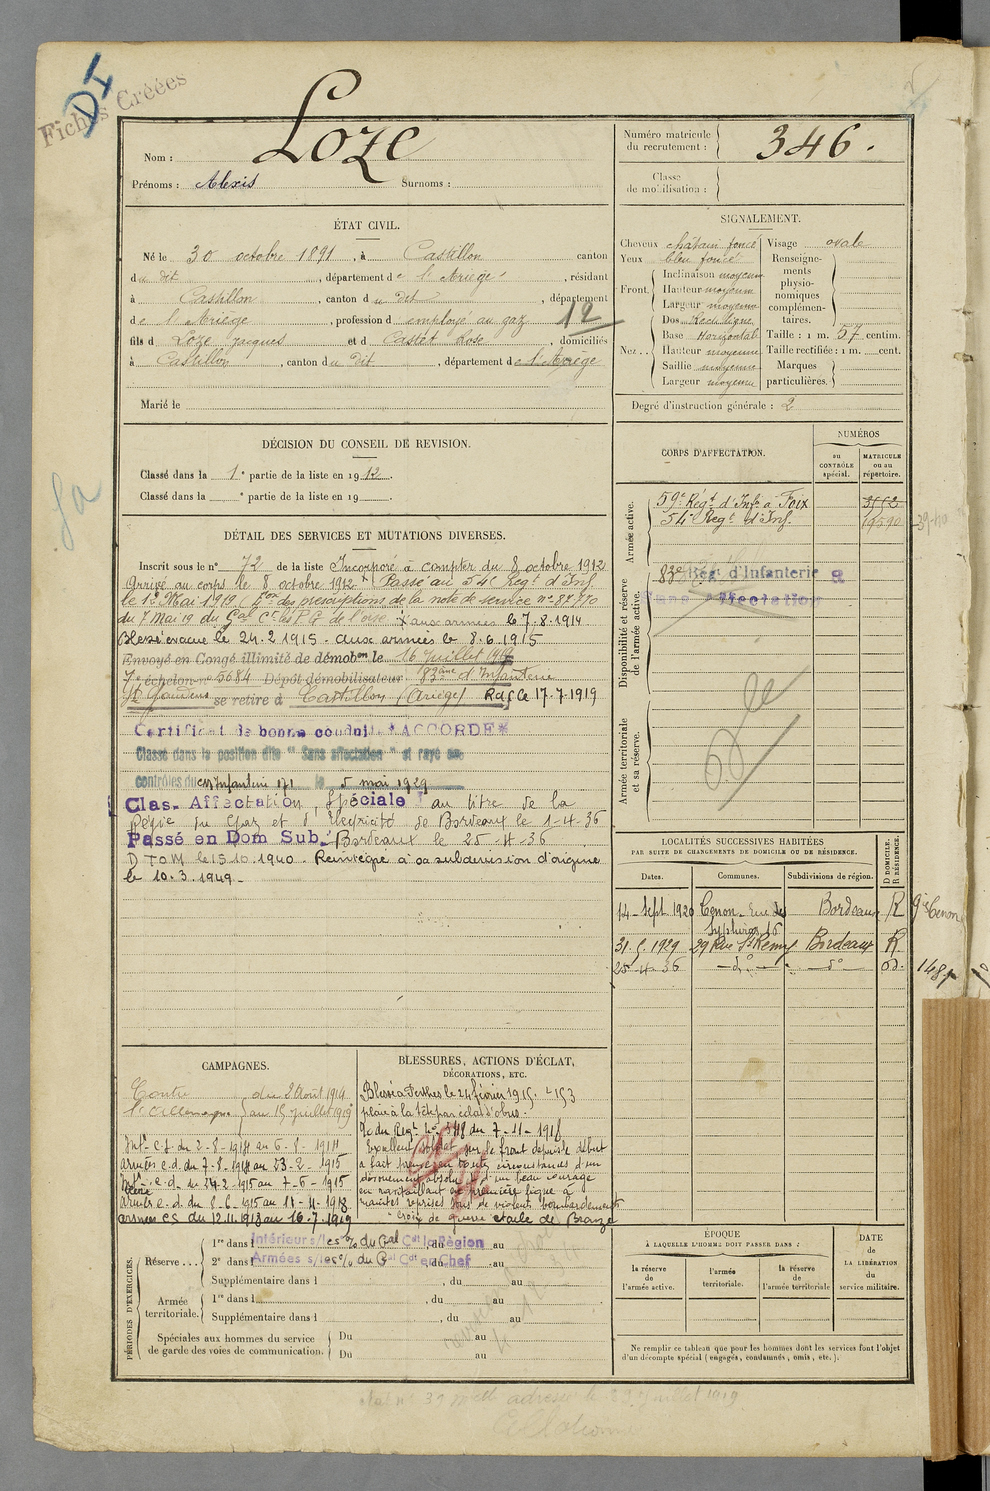 DI
Fiches Créées
Nom : Loze
Prénoms : Alexis Surnoms :
Numéro matricule du recrutement : 346.
Classe de mobilisation :
ÉTAT CIVIL.
Né le 30 octobre 1891, à Castillon canton
du dit, département de l'Ariège, résidant
à Castillon, canton du dit, département
de l'Ariège, profession d employé au gaz 12
fils d Loze Jacques et d Castet Rose, domiciliés
à Castillon, canton du dit, département de l'Ariège
Marié le
SIGNALEMENT.
Cheveux châtain foncé
Yeux bleu foncé
Front. Inclinaison moyenne
Hauteur moyenne
Largeur moyenne
Nez.. Dos Rectiligne
Base Horizontale
Hauteur moyenne
Saillie moyenne
Largeur moyenne
Visage ovale
Renseignements physionomiques complémentaires.
Taille : 1 m. 57 centim.
Taille rectifiée : 1 m. cent.
Marques particulières.
Degré d'instruction générale : 2
DÉCISION DU CONSEIL DE REVISION.
Classé dans la 1e partie de la liste en 1912.
Classé dans la e partie de la liste en 19 .
DÉTAIL DES SERVICES ET MUTATIONS DIVERSES.
Inscrit sous le n° 72 de la liste Incorporé à compter du 8 octobre 1912
Arrivé au corps le 8 octobre 1912 Passé au 54e Régt d'Inf.
le 1er Mai 1919 (Eon des prescriptions de la note de service n° 87770
du 7 Mai 19 du Gal Ct les P.G. de l'oise. X aux armées le 7-8-1914
Blessé évacué le 24-2-1915 - aux armées le 8-6-1915
Envoyé en Congé illimité de démobon le 16 Juillet 1919
7e échelon n° 5684 Dépôt démobilisateur 83ème d'Infanterie
St Gaudens se retire à Castillon (Ariège) R.d.f. le 17-7-1919
Certificat de bonne conduite "ACCORDÉ"
Classé dans la position dite "Sans affectation" et rayé des
contrôles du cm Infanterie 171 le 5 mai 1929
Clas. Affectation Spéciale au titre de la
Régie du Gaz et d'Electricité de Bordeaux le 1-4-36
Passé en Dom Sub. Bordeaux le 25-4-36
D TOM le 15.10.1940. Réintégré à sa subdivision d'origine
le 10.3.1949.-
CORPS D'AFFECTATION.
NUMÉROS
au CONTRÔLE spécial.
MATRICULE ou au répertoire.
Armée active.
59e Régt d'Infie à Foix 3552
54e Régt d'Inf. 19590
Disponibilité et réserve de l'armée active.
83e Rég. d'Infanterie
Sans affectation
Armée territoriale et sa réserve.
LOCALITÉS SUCCESSIVES HABITÉES
PAR SUITE DE CHANGEMENTS DE DOMICILE OU DE RÉSIDENCE.
Dates. Communes. Subdivisions de région. D DOMICILE. R RÉSIDENCE.
14-Sept 1920 Cenon - Rue des 16 Bordeaux R
31. 1929 29 Rue St Remy Bordeaux R.
25-4-36 - do - - do -
CAMPAGNES.
Contre l'Allemagne du 2 Août 1914 au 15 Juillet 1919
Intr c.d. du 2-8-1914 au 6-8-1914
armées c.d. du 7-8-1914 au 23-2-1915
Intr c.d. du 24-2-1915 au 7-6-1915
armées c.d. du 8-6-1915 au 11-11-1918
armées cs du 12.11.1918 au 16-7-1919
BLESSURES, ACTIONS D'ÉCLAT,
DÉCORATIONS, ETC.
Blessé à Perthes le 24 février 1915.
plaie à la tête par éclat d'obus.
O du Regt n° 548 du 7-11-1918
Excellent soldat, sur le front depuis le début
a fait preuve en toutes circonstances d'un
dévouement absolu et d'un beau courage
en ravitaillant la première ligne à
maintes reprises sous de violents bombardements
Croix de guerre étoile de Bronze
PÉRIODES D'EXERCICES.
Réserve...
1re dans l Intérieur s/les % du Gal Ct la Région, du au
2e dans l Armées s/les % du Gal Ct en Chef, du au
Supplémentaire dans l , du au
Armée territoriale.
1re dans l , du au
Supplémentaire dans l , du au
Spéciales aux hommes du service de garde des voies de communication.
Du au
Du au
ÉPOQUE
À LAQUELLE L'HOMME DOIT PASSER DANS :
la réserve de l'armée active.
l'armée territoriale.
la réserve de l'armée territoriale
DATE de LA LIBÉRATION du service militaire.
Ne remplir ce tableau que pour les hommes dont les services font l'objet
d'un décompte spécial (engagés, condamnés, omis, etc.).